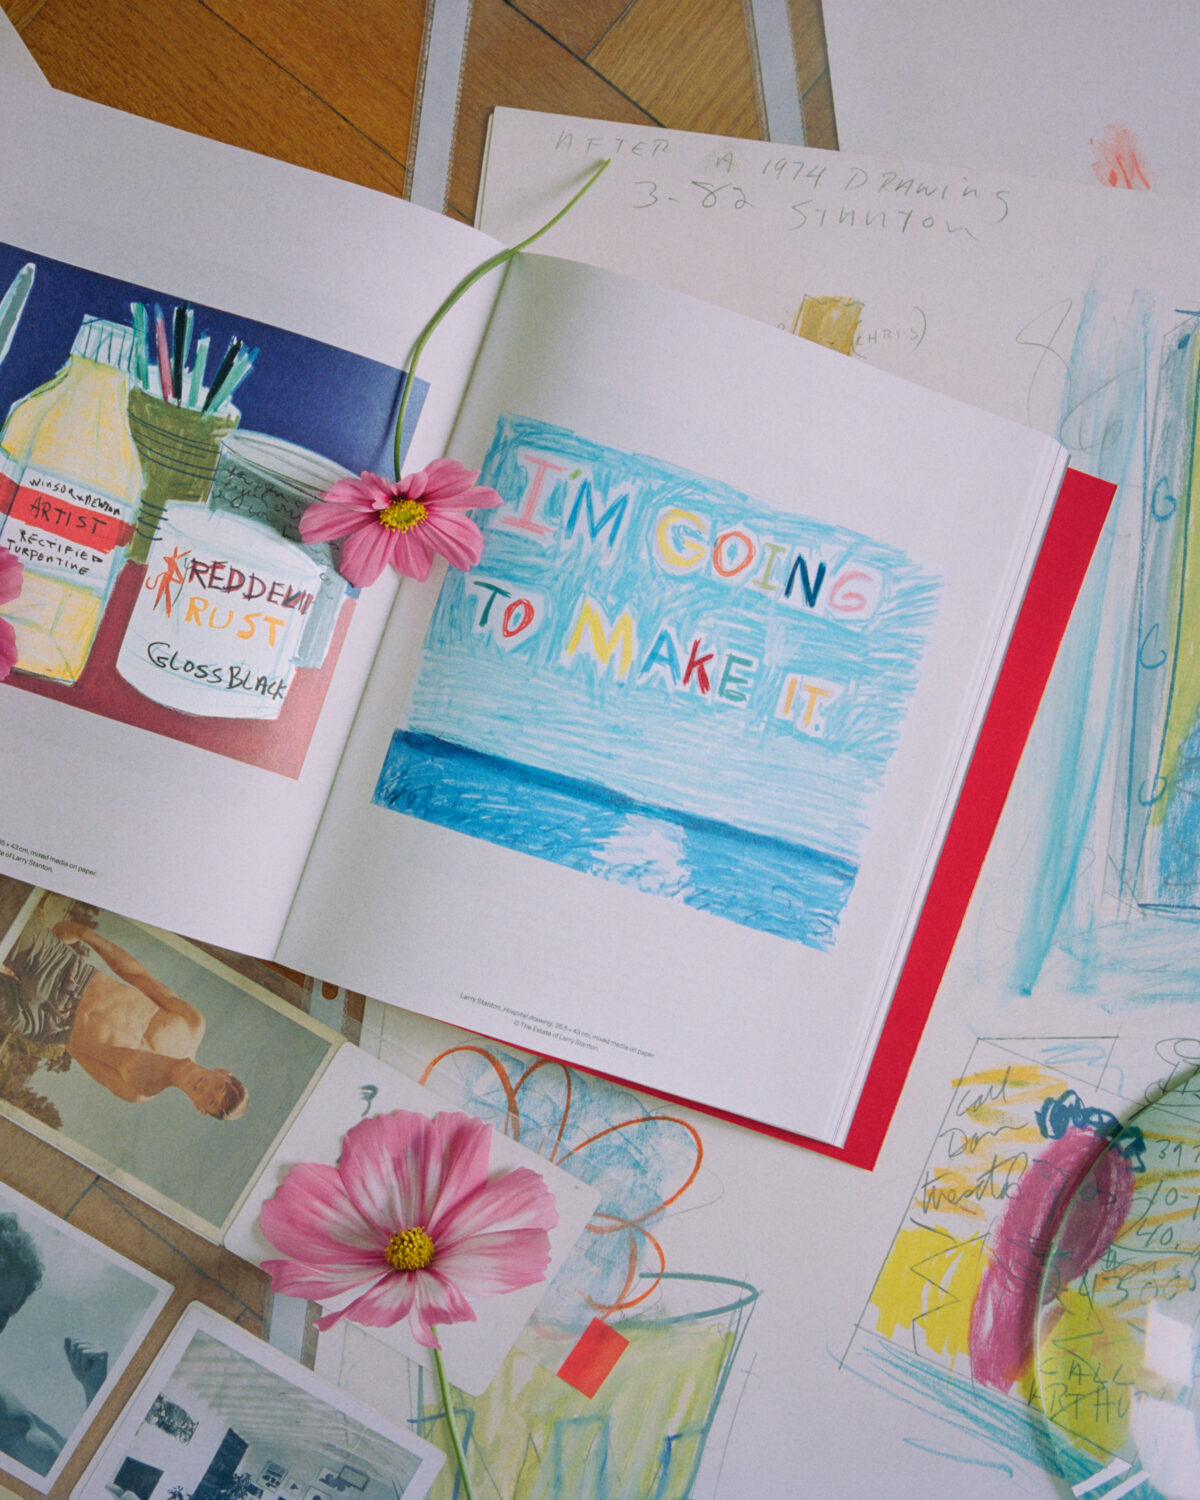 AFTER A 1974 DRAWING
3-82 STANTON
(CHRIS)
WINSOR & NEWTON
ARTIST
RECTIFIED
TURPENTINE
REDDEVIL
RUST
GLOSS BLACK
I'M GOING
TO MAKE IT.
43 cm, mixed media on paper.
Estate of Larry Stanton.
Larry Stanton, Hospital drawing, 35.5 × 43 cm, mixed media on paper.
© The Estate of Larry Stanton.
call
Don
40,
CALL